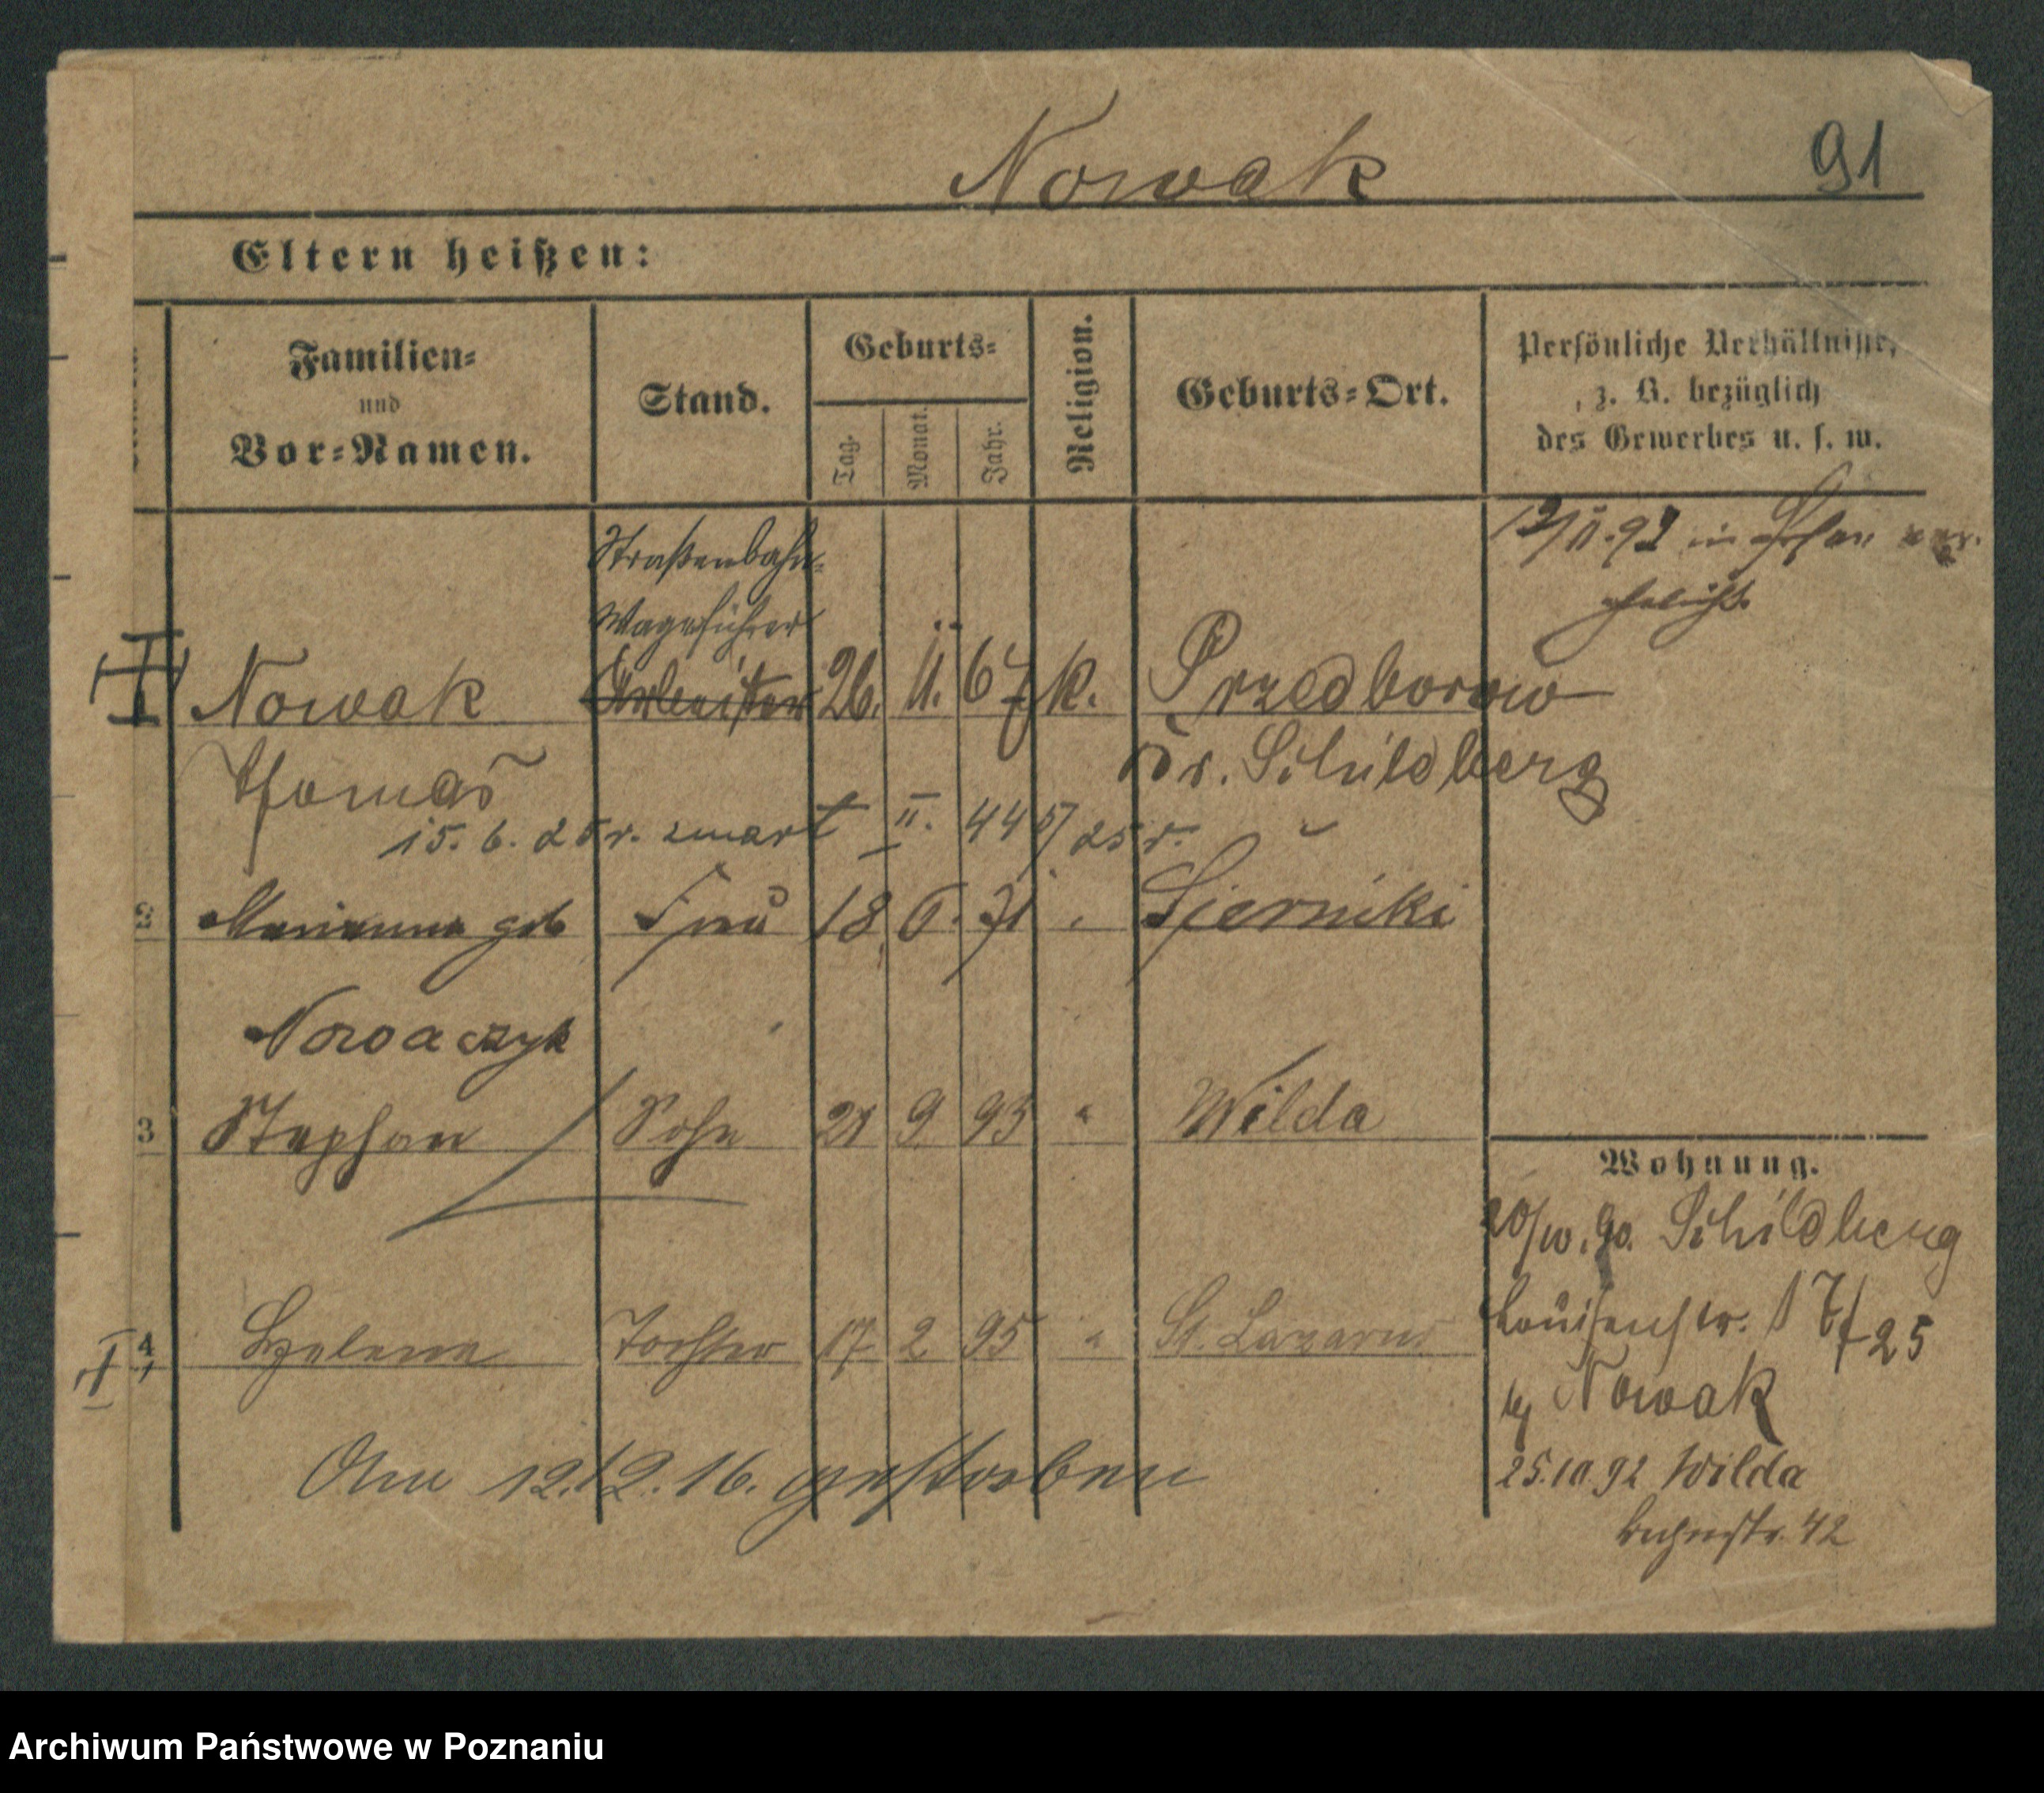 Nowak 91
Eltern heißen:
Familien-
und
Vor-Namen.
Stand.
Geburts-
Tag.
Monat.
Jahr.
Religion.
Geburts-Ort.
Persönliche Verhältnisse,
z. B. bezüglich
des Gewerbes u. s. w.
in Posen ver-
ehelicht.
Straßenbahn-
Wagenführer
Nowak Arbeiter 26. 11. 67 k. Przedborow
Thomas Kr. Schildberg
15. 6. 25 r. zmarł II. 445/25 r.
2 Marianna geb Frau 18. 6. 71 Sierniki
Nowaczyk
3 Stephan Sohn 21 9 93 " Wilda
4 Helene Tochter 17 2 95 " St. Lazarus
Am 12.12.16. gestorben
Wohnung.
20/10. 90. Schildberg
Louisenstr. 17/25
Nowak
25.10 92 Wilda
42
Archiwum Państwowe w Poznaniu